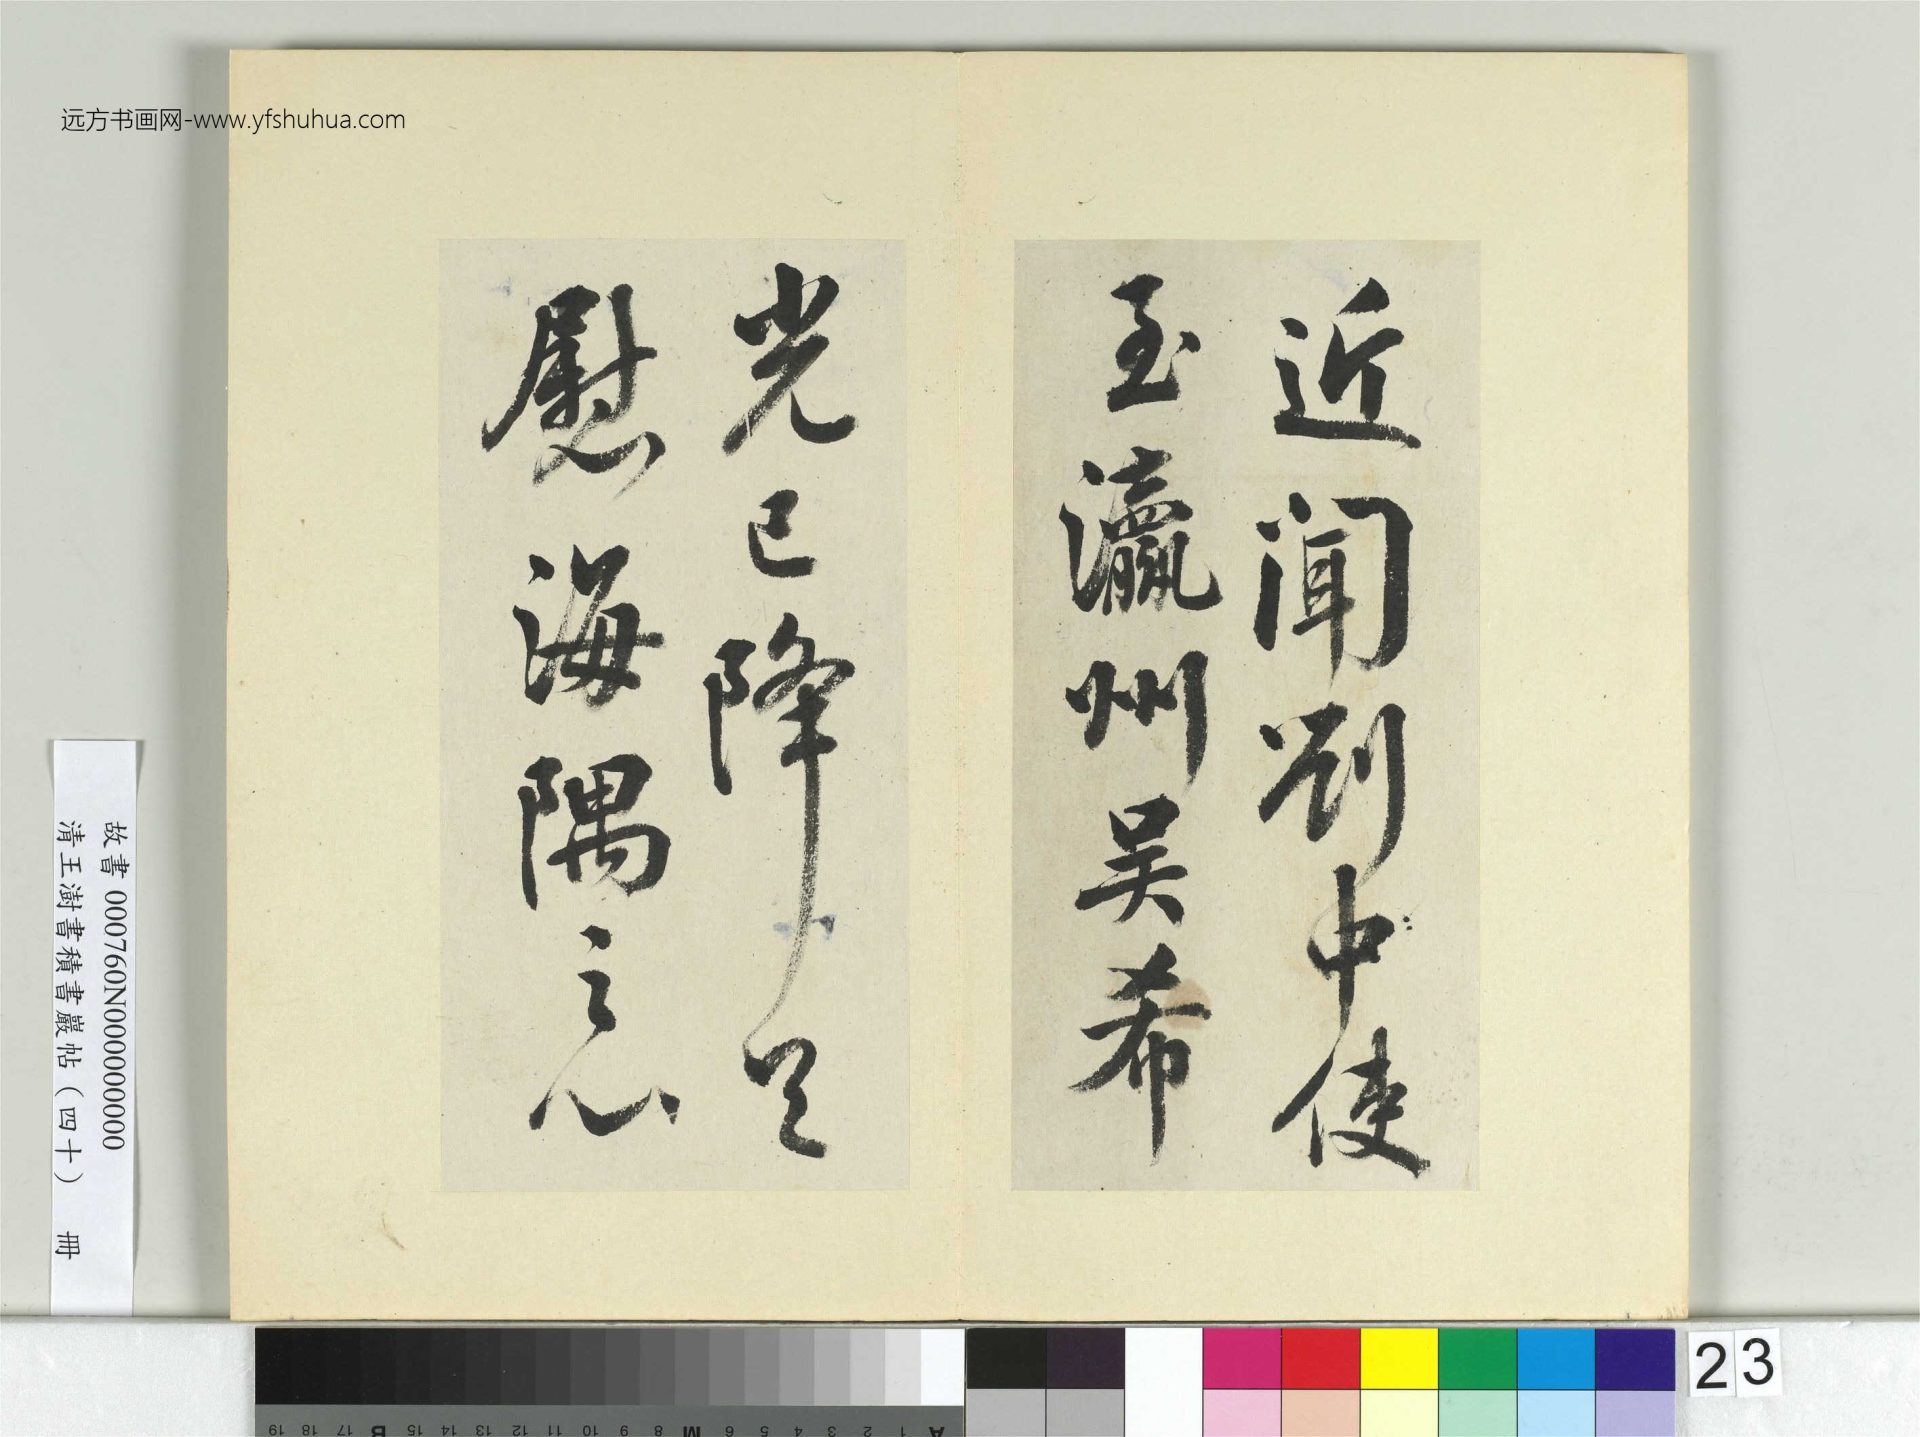 远方书画网-www.yfshuhua.com
近聞劉中使
至瀛州吴希
光已降足
慰海隅之心
故書 000760N000000000
清王澍書積書巖帖（四十） 冊
23
A 1 2 3 4 5 6 M 8 9 10 11 12 13 14 15 B 17 18 19